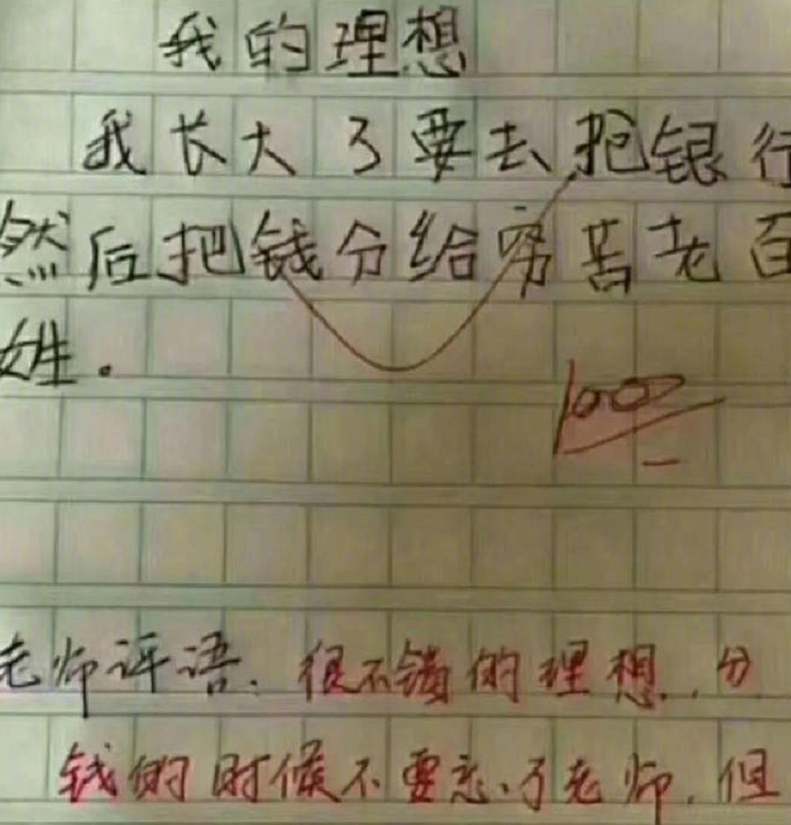 我的理想
我长大了要去抢银行
然后把钱分给穷苦老百
姓.
100
老师评语.很不错的理想.,分
钱的时候不要忘了老师,但